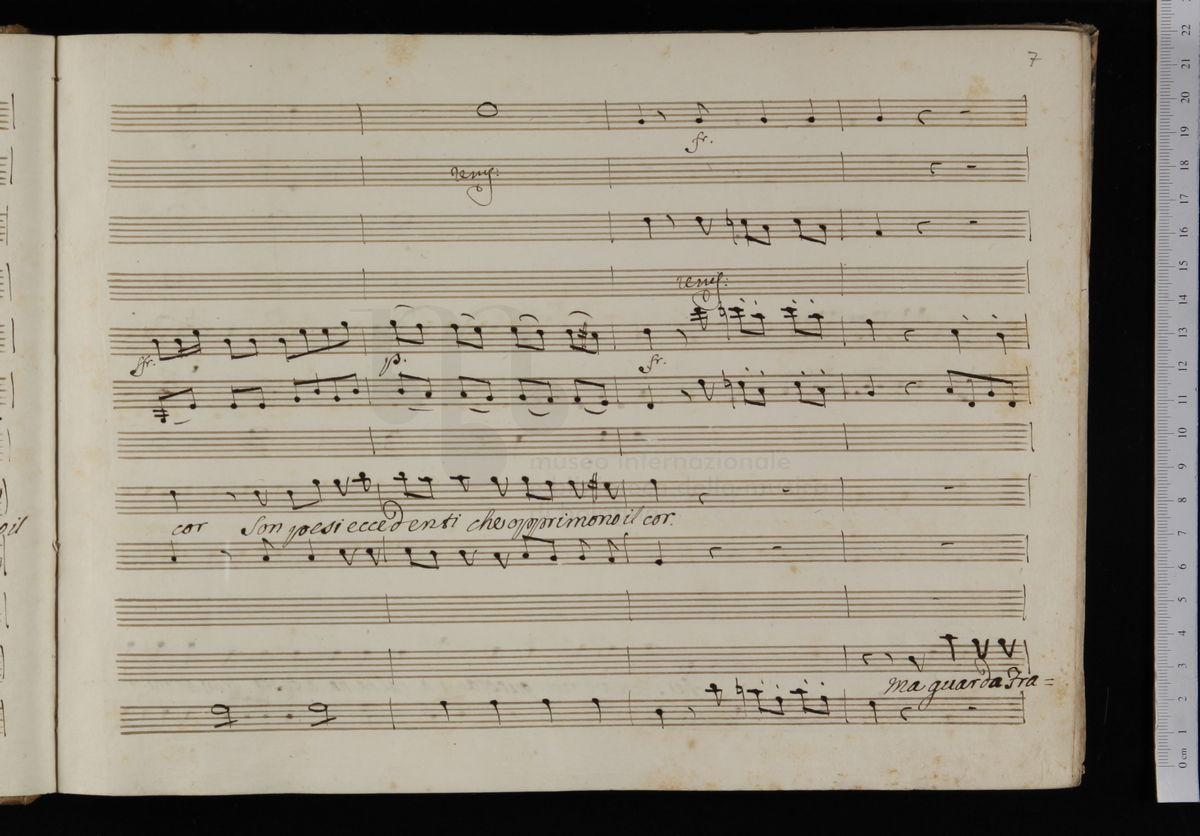 7
fr.
unis:
unis:
fr.
p.
fr.
museo internazionale
cor Son pesi eccedenti che opprimono il cor.
o il
Ma guarda Fra=
22
21
20
19
18
17
16
15
14
13
12
11
10
9
8
7
6
5
4
3
2
1
0 cm